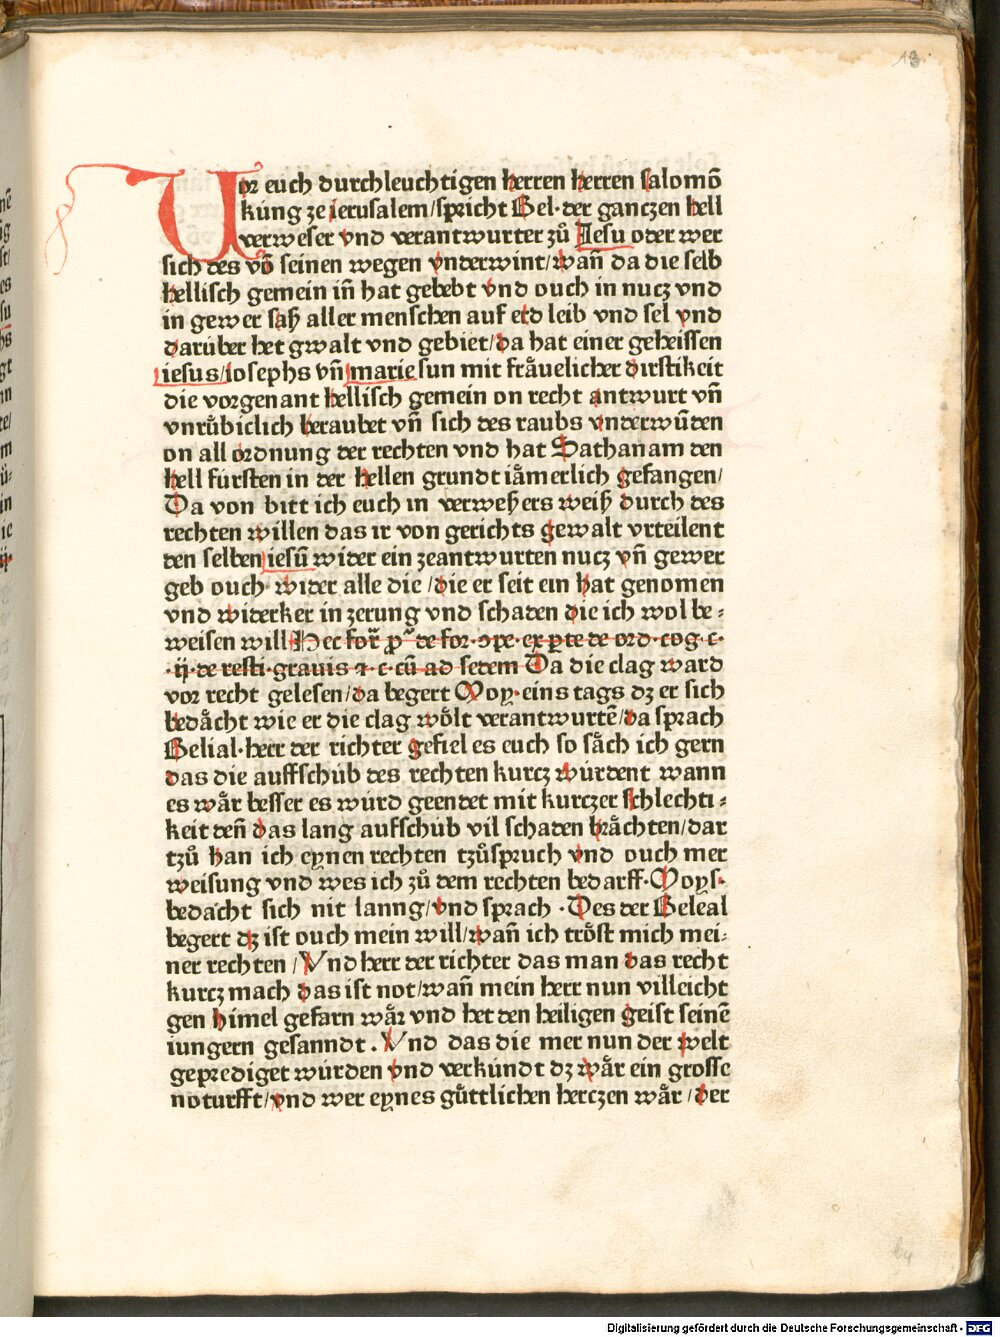 13
Uor euch durchleuchtigen herren herren salomō
kúng ze ierusalem/spricht Bel·der ganczen hell
verweser vnd verantwurter zů Jesu oder wer
sich des vō seinen wegen vnderwint/wañ da die selb
hellisch gemein iñ hat gehebt vnd ouch in nucz vnd
in gewer saß aller menschen auf erd leib vnd sel vnd
darúber het gwalt vnd gebiet/da hat einer geheissen
iesus/iosephs vñ marie sun mit fräuelicher dirstikeit
die vorgenant hellisch gemein on recht antwurt vñ
vnrůbiclich beraubet vñ sich des raubs vnderwūden
on all ordnung der rechten vnd hat Sathanam den
hell fúrsten in der hellen grundt iämerlich gefangen/
Da von bitt ich euch in verweßers weiß durch des
rechten willen das ir von gerichts gewalt vrteilent
den selben iesū wider ein zeantwurten nucz vñ gewer
geb ouch wider alle die/die er seit ein hat genomen
vnd widerker in zerung vnd schaden die ich wol be⸗
weisen will Hec for̄ p̄ de for·ɔpe·ex pte de ord·cog·c·
·ij·de resti·grauis ⁊·c·cū ad sedem Da die clag ward
vor recht gelesen/da begert Moy·eins tags dz er sich
bedächt wie er die clag wölt verantwurtē/da sprach
Belial·herr der richter gefiel es euch so säch ich gern
das die auffschúb des rechten kurcz wúrdent wann
es wär besser es wúrd geendet mit kurczer schlechti⸗
keit deñ das lang aufschúb vil schaden brächten/dar
tzů han ich eynen rechten tzůspruch vnd ouch mer
weisung vnd wes ich zů dem rechten bedarff·Moys·
bedacht sich nit lanng/vnd sprach ·Des der Beleal
begert dz ist ouch mein will/wañ ich tröst mich mei⸗
ner rechten/Vnd herr der richter das man das recht
kurcz mach das ist not/wañ mein herr nun villeicht
gen himel gefarn wär vnd het den heiligen geist seinē
iungern gesanndt. Vnd das die mer nun der welt
geprediget wúrden vnd verkúndt dz wär ein grosse
noturfft/vnd wer eynes gúttlichen herczen wär/der
Digitalisierung gefördert durch die Deutsche Forschungsgemeinschaft - DFG